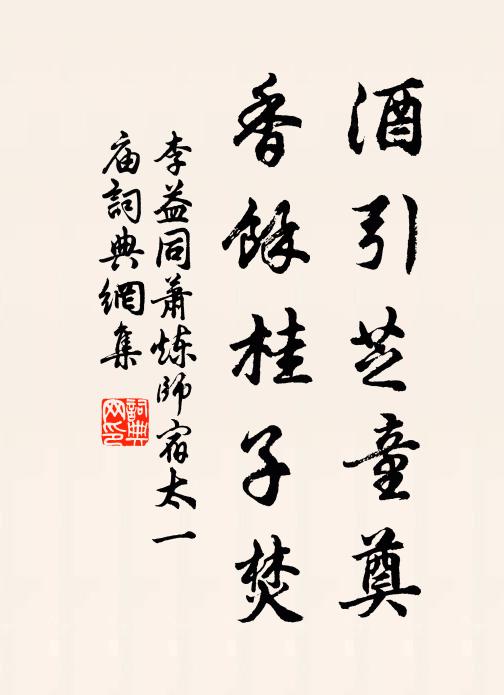 酒引芝童奠
香餘桂子焚
李益同蕭炼師宿太一
庙詞典網集
詞典
网印